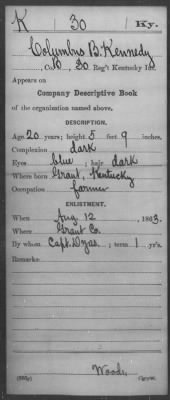 K 30 Ky.
Columbus B. Kennedy
Co. , 30 Reg't Kentucky Inf.
Appears on
Company Descriptive Book
of the organization named above.
DESCRIPTION.
Age 20 years; height 5 feet 9 inches.
Complexion dark
Eyes blue ; hair dark
Where born Grant, Kentucky
Occupation farmer
ENLISTMENT.
When Aug. 12 , 1863.
Where Grant Co.
By whom Capt. Dyas. ; term 1 yr's.
Remarks:
Woods
Copyist.